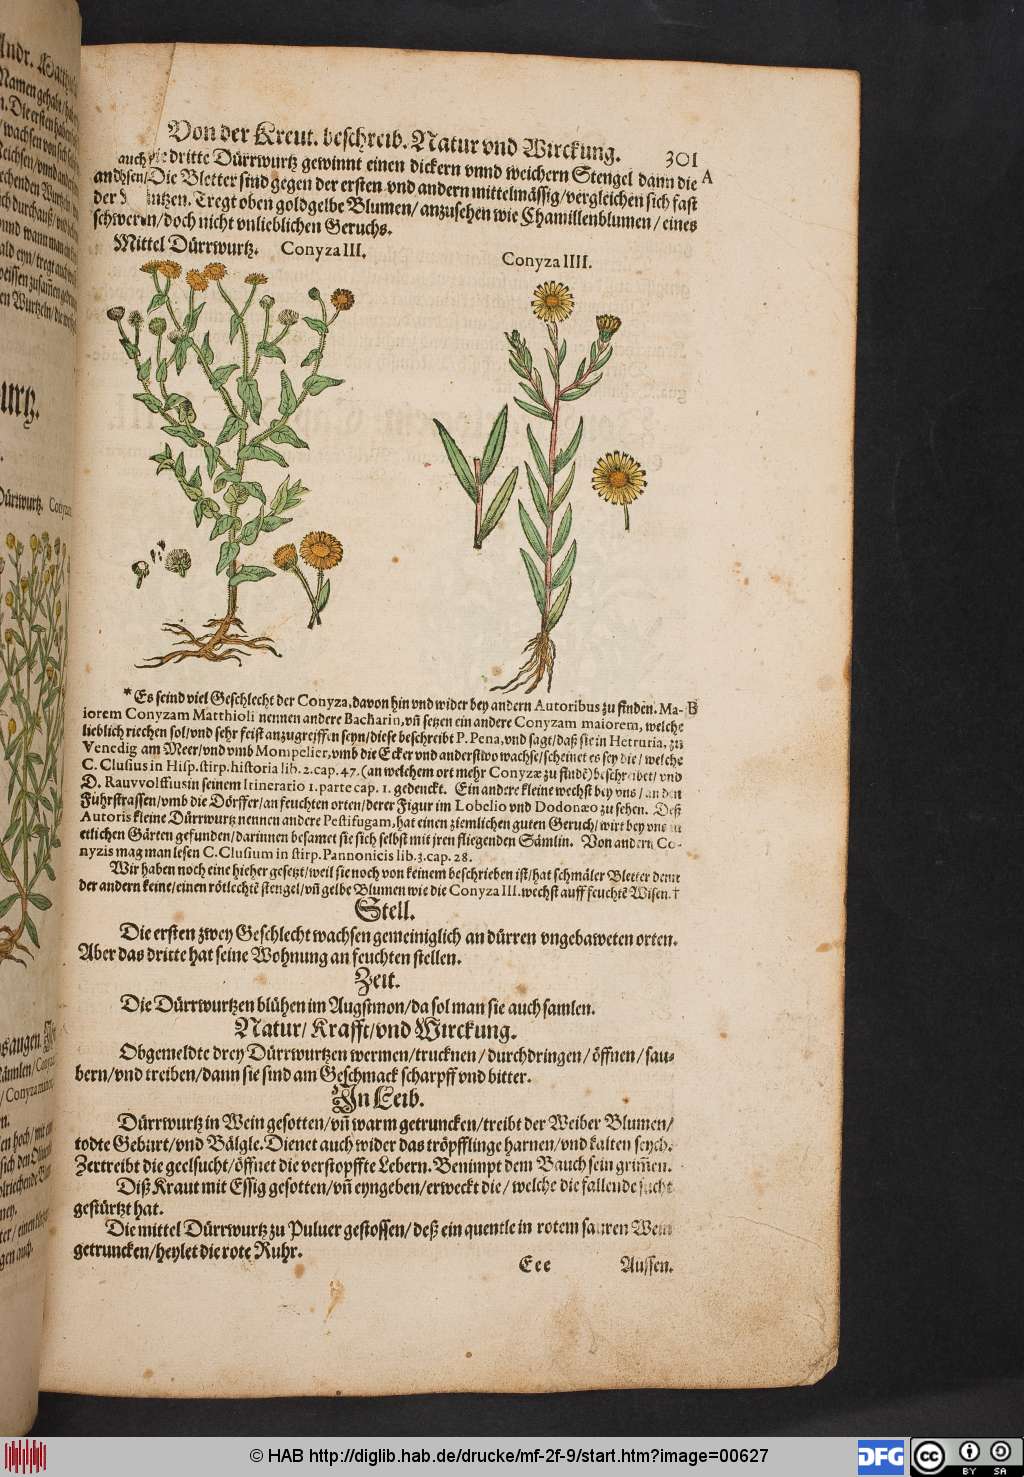 Von der Kreut. beschreib. Natur vnd Wirckung. 301
auch die dritte Dürrwurtz gewinnt einen dickern vnnd weichern Stengel dann die A
andern/Die Bletter sind gegen der ersten vnd andern mittelmässig/vergleichen sich fast
der Tregt oben goldgelbe Blumen/ anzusehen wie Chamillenblumen/ eines
schweren/doch nicht vnlieblichen Geruchs.
Mittel Dürrwurtz. Conyza III.
Conyza IIII.
* Es seind viel Geschlecht der Conyza, davon hin vnd wider bey andern Autoribus zu finden. Ma- B
iorem Conyzam Matthioli nennen andere Bacharin, vñ setzen ein andere Conyzam maiorem, welche
lieblich riechen sol/vnd sehr feist anzugreiffen seyn/diese beschreibt P. Pena, vnd sagt/daß sie in Hetruria, zu
Venedig am Meer/vnd vmb Mompelier, vmb die Ecker vnd anderstwo wachse/scheinet es sey die/ welche
C. Clusius in Hisp. stirp. historia lib. 2. cap. 47. (an welchem ort mehr Conyzæ zu findẽ) beschreibet/ vnd
D. Rauvvolffius in seinem Itinerario 1. parte cap. 1. gedenckt. Ein andere kleine wechst bey vns/ an den
Führstrassen/vmb die Dörffer/an feuchten orten/derer Figur im Lobelio vnd Dodonæo zu sehen. Deß
Autoris kleine Dürrwurtz nennen andere Pestifugam, hat einen ziemlichen guten Geruch/ wirt bey vns in
etlichen Gärten gefunden/darinnen besamet sie sich selbst mit jren fliegenden Sämlin. Von andern Co-
nyzis mag man lesen C. Clusium in stirp. Pannonicis lib. 3. cap. 28.
Wir haben noch eine hieher gesetzt/weil sie noch von keinem beschrieben ist/hat schmäler Bletter denn
der andern keine/einen rötlechtẽ stengel/vñ gelbe Blumen wie die Conyza III. wechst auff feuchtẽ Wisen. †
Stell.
Die ersten zwey Geschlecht wachsen gemeiniglich an dürren vngebaweten orten.
Aber das dritte hat seine Wohnung an feuchten stellen.
Zeit.
Die Dürrwurtzen blühen im Augstmon/da sol man sie auch samlen.
Natur/ Krafft/vnd Wirckung.
Obgemeldte drey Dürrwurtzen wermen/trucknen/ durchdringen/ öffnen/ seu-
bern/vnd treiben/dann sie sind am Geschmack scharpff vnd bitter.
In Leib.
Dürrwurtz in Wein gesotten/ vñ warm getruncken/treibt der Weiber Blumen/
todte Geburt/vnd Bälgle. Dienet auch wider das tröpfflinge harnen/vnd kalten seych.
Zertreibt die geelsucht/öffnet die verstopffte Lebern. Benimpt dem Bauch sein grim̃en.
Diß Kraut mit Essig gesotten/vñ eyngeben/erweckt die/ welche die fallende sucht
gestürtzt hat.
Die mittel Dürrwurtz zu Puluer gestossen/ deß ein quentle in rotem sauren Wein
getruncken/heylet die rote Ruhr.
Eee Aussen.
© HAB http://diglib.hab.de/drucke/mf-2f-9/start.htm?image=00627
DFG
cc BY SA